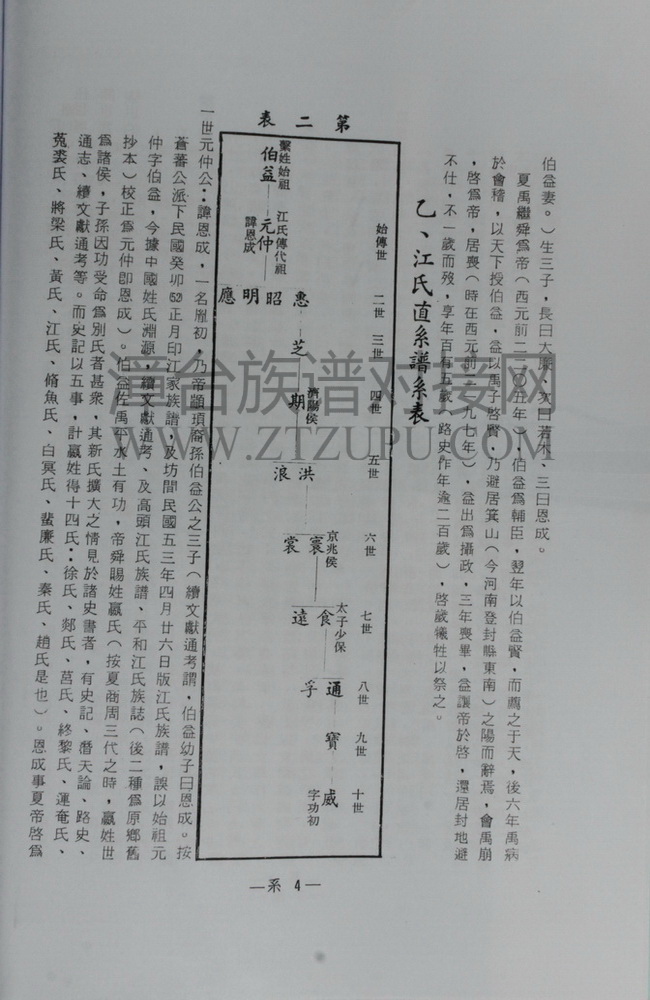 伯益妻。)生三子,長曰大廉、次曰若木、三曰恩成。
夏禹繼舜爲帝(西元前二二〇五年),伯益爲輔臣,翌年以伯益賢,而薦之于天,後六年禹病
於會稽,以天下授伯益,益以禹子啓賢,乃避居箕山(今河南登封縣東南)之陽而辭焉,會禹崩
,啓爲帝,居喪(時在西元前二一九七年),益出爲攝政,三年喪畢,益讓帝於啓,還居封地避
不仕,不一歲而歿,享年百有五歲(路史作年逾二百歲),啓歲犧牲以祭之。
乙、江氏直系譜系表
第二表
始傳世
二世
三世
四世
五世
六世
七世
八世
九世
十世
嬴姓始祖
伯益
江氏傳代祖
元仲
諱恩成
惠
昭
明
應
芝
濟陽侯
期
洪
浪
京兆侯
寰
裳
太子少保
食
遠
通
孚
寶
威
字功初
一世元仲公:諱恩成,一名胤初,乃帝顓頊裔孫伯益公之三子(續文獻通考謂,伯益幼子曰恩成。按
蒼蕃公派下民國癸卯52正月印江家族譜,及坊間民國五三年四月廿六日版江氏族譜,誤以始祖元
仲字伯益,今據中國姓氏淵源,續文獻通考、及高頭江氏族譜、平和江氏族誌(後二種爲原鄉舊
抄本)校正爲元仲卽恩成)。伯益佐禹平水土有功,帝舜賜姓嬴氏(按夏商周三代之時,嬴姓世
爲諸侯,子孫因功受命爲別氏者甚衆,其新氏擴大之情見於諸史書者,有史記、潛夫論、路史、
通志、續文獻通考等。而史記以五事,計嬴姓得十四氏:徐氏、郯氏、莒氏、終黎氏、運奄氏、
菟裘氏、將梁氏、黃氏、江氏、脩魚氏、白冥氏、蜚廉氏、秦氏、趙氏是也)。恩成事夏帝啓爲
—系 4—
漳台族谱对接网
WWW.ZTZUPU.COM